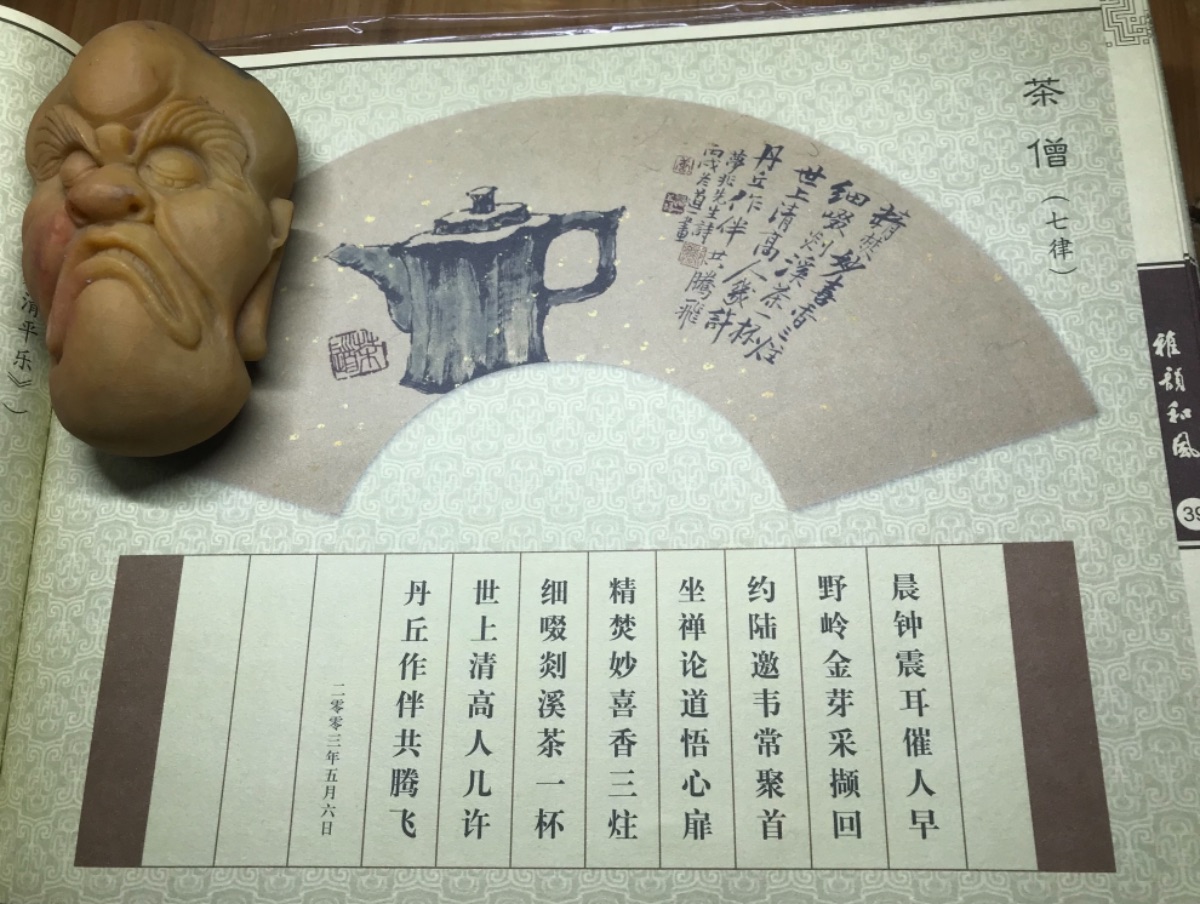 茶僧（七律）
精焚妙喜香三炷
细啜剡溪茶一杯
世上清高人几许
丹丘作伴共腾飛
雅韻和風
39
晨钟震耳催人早
野岭金芽采撷回
约陆邀韦常聚首
坐禅论道悟心扉
精焚妙喜香三炷
细啜剡溪茶一杯
世上清高人几许
丹丘作伴共腾飞
二零零三年五月六日
清平乐》）